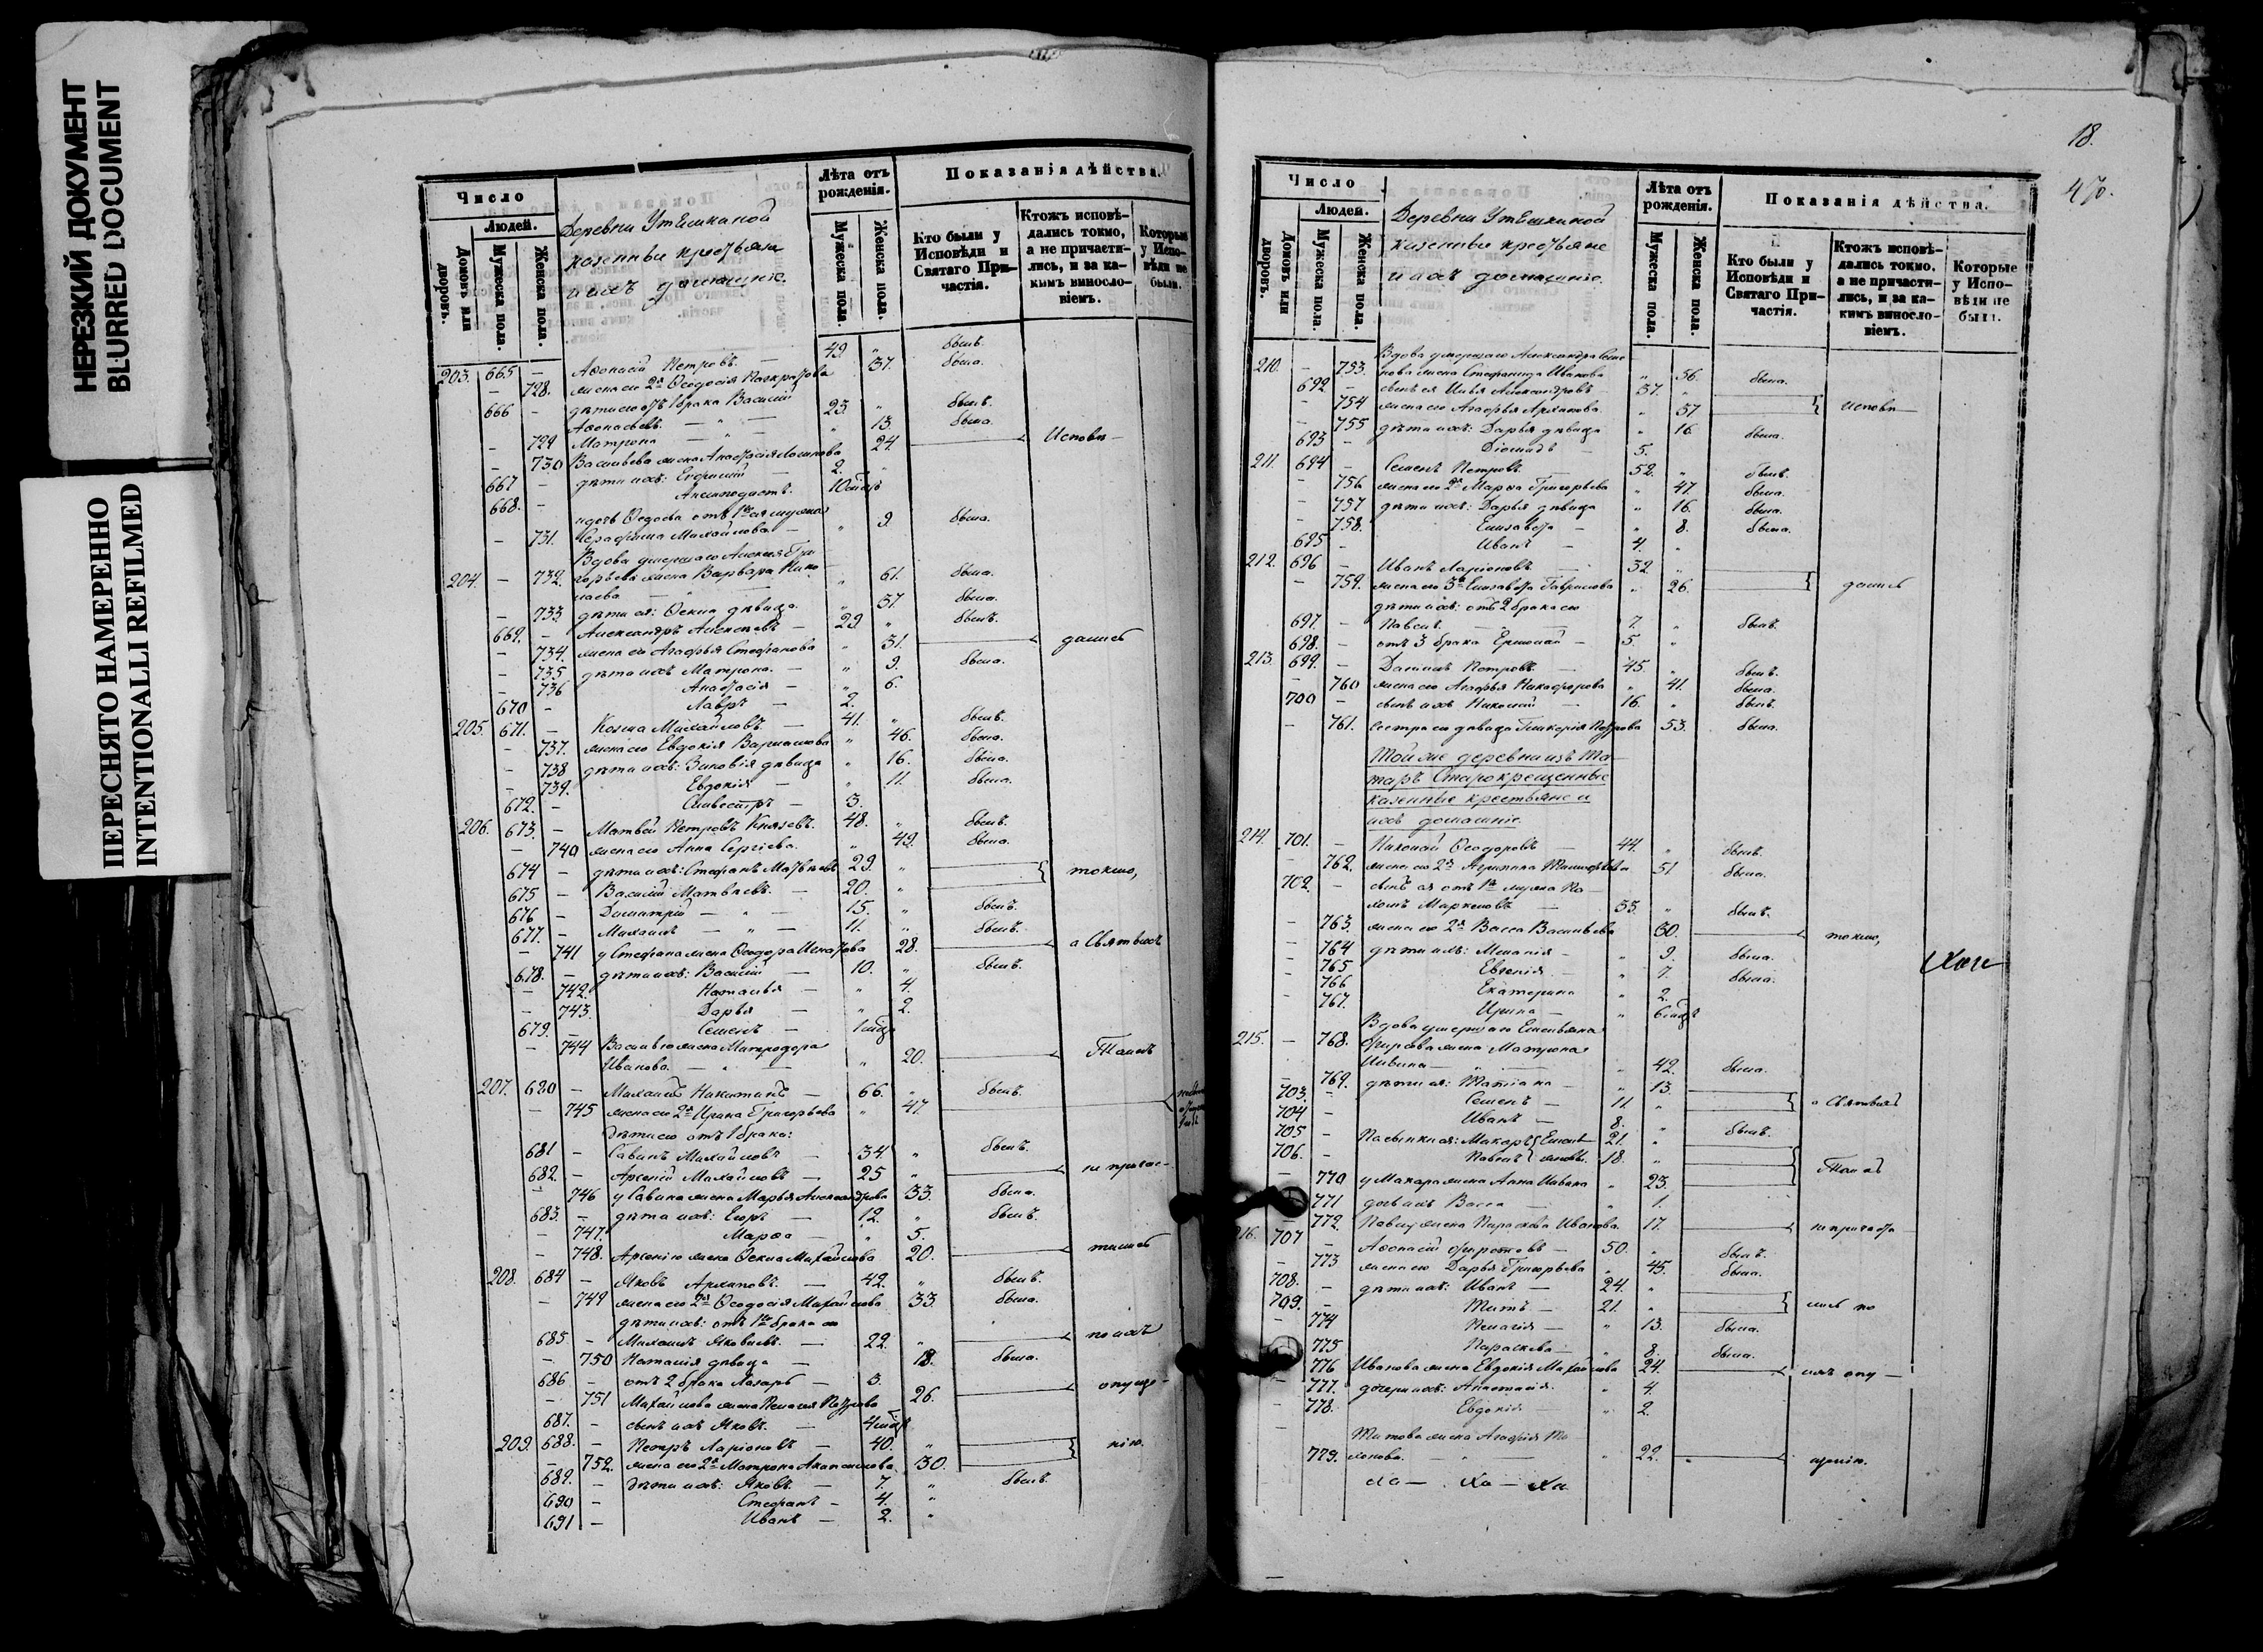 НЕРЕЗКИЙ ДОКУМЕНТ
BLURRED DOCUMENT
ПЕРЕСНЯТО НАМЕРЕННО
INTENTIONALLI REFILMED
Число
Людей.
Домовъ или дворовъ.
Мужеска пола.
Женска пола.
Деревни Утяшкиной
казенные крестьяне
и ихъ домашніе.
Лѣта отъ рожденія.
Мужеска пола.
Женска пола.
Показанія дѣйства.
Кто были у Исповѣди и Святаго Причастія.
Ктожъ исповѣдались токмо, а не причастились, и за какимъ винословіемъ.
Которые у Исповѣди не были.
203. 665 – Аѳонасій Петровъ. – 49. „ былъ.
– 728. жена его 2я Ѳеодосія Панкратова 37. была.
666 – дѣти его отъ 1 брака Василій
Аѳонасьевъ – „ – 23 „ былъ.
– 729 Матрона – „ – „ 13. была.
– 730 Васильева жена Анастасія Логинова 24. Исповѣ–
667 – дѣти ихъ: Евфимій – 2. „
668. – Анемподистъ. 10 мѣсц.
– 731. Серафима Михайлова – „ 9. была.
Вдова умершаго Алексѣя Гри–
204. – 732. горьева жена Варвара Нико–
лаева – „ – „ 61. была.
– 733 дѣти ея: Ѳекла дѣвица „ 37. была.
669. – Александръ Алексѣевъ – 29 „ былъ.
– 734. жена его Агафья Стефанова „ 31. дались
– 735 дѣти ихъ Матрона. – „ 9. была.
– 736 Анастасія – „ 6.
670 – Лавръ – 2.
205. 671. – Козма Михайловъ – 41. „ былъ.
– 737. жена его Евдокія Варламова „ 46. была.
– 738 дѣти ихъ: Зиновія дѣвица „ 16. была.
– 739. Евдокія – „ 11. была.
672. – Сильвестръ – 3.
206. 673. – Матвѣй Петровъ Князевъ. 48. „ былъ.
– 740 жена его Анна Сергіева. „ 49. была.
674 – дѣти ихъ: Стефанъ Матвѣевъ 29. „
675 – Василій Матвѣевъ. – 20. „ токмо,
676 – Димитрій – „ – 15. „ былъ.
677. – Михаилъ – „ – 11. „ былъ.
– 741 у Стефана жена Ѳеодора Игнатова 28. а Святыхъ
678. – дѣти ихъ: Василій – 10. „ былъ.
– 742. Наталья – „ 4.
– 743. Дарья – „ 2.
679. – Семенъ – 1 мѣсц.
– 744 Василью жена Митродора
Иванова. – „ – „ 20. Таинъ
207. 680 – Михаилъ Никитинъ – 66. „ былъ.
– 745 жена его 2я Ирина Григорьева „ 47
Дѣти его отъ 1 брака:
681 – Савинъ Михайловъ – 34. „ былъ.
682. – Арсеній Михайловъ – 25 „ не причас–
– 746 у Савина жена Марья Александрова 33. была.
683. – дѣти ихъ: Егоръ – 12. „ былъ.
– 747. Марѳа – „ 5.
– 748. Арсенію жена Ѳекла Михайлова 20. тились
208. 684 – Яковъ Архиповъ. – 42. „ былъ.
– 749 жена его 2я Ѳеодосія Михайлова 33. была.
дѣти ихъ: отъ 1го брака его
685 – Михаилъ Яковлевъ. – 22. „ по ихъ
– 750 Наталія дѣвица – 18. была.
686 – отъ 2 брака Лазарь – 3.
– 751 Михайлова жена Пелагея Петрова 26. опуще–
687. – сынъ ихъ Яковъ. – 4 мѣсц.
209. 688. – Петръ Ларіоновъ – 40. „
– 752. жена его 2я Матрона 30. нію.
689. – дѣти ихъ: Яковъ. – 7. „ былъ.
690 – Стефанъ – 4. „
691 – Иванъ – 2. „
18.
470.
Число
Людей.
Домовъ или дворовъ.
Мужеска пола.
Женска пола.
Деревни Утяшкиной
казенные крестьяне
и ихъ домашніе.
Лѣта отъ рожденія.
Мужеска пола.
Женска пола.
Показанія дѣйства.
Кто были у Исповѣди и Святаго Причастія.
Ктожъ исповѣдались токмо, а не причастились, и за какимъ винословіемъ.
Которые у Исповѣди не были.
Вдова умершаго Александра Семе–
210. – 753. нова жена Стефанида Иванова „ 56. была.
692 – сынъ ея Илья Александровъ 37. „
– 754 жена его Агафья Архипова. „ 37 Исповѣ–
– 755 дѣти ихъ: Дарья дѣвица „ 16. была.
693 – Діомидъ – 5.
211. 694 – Семенъ Петровъ – 52. „ былъ.
– 756 жена его 2я Марѳа Григорьева „ 47. была.
– 757 дѣти ихъ: Дарья дѣвица „ 16. была.
– 758. Елизавета – „ 8. была.
695 – Иванъ – 4. „
212. 696 – Иванъ Ларіоновъ – 32. „
– 759. жена его 3я Елизавета Гаврилова „ 26. дались
дѣти ихъ: отъ 2 брака его
697. – Павелъ. – 7. „ былъ.
698. – отъ 3 брака Ермолай – 5. „
213. 699. – Даніилъ Петровъ. – 45. „ былъ.
– 760 жена его Агафья Никифорова „ 41. была.
700 – сынъ ихъ Николай – 16. „ былъ.
– 761. сестра его дѣвица Гликерія Петрова 53. была.
Той же деревни изъ Та–
таръ Старокрещенные
казенные крестьяне и
ихъ домашніе
214. 701. – Николай Ѳеодоровъ – 44. „ былъ.
– 762. жена его 2я Агрипина Тимофѣева 51 была.
702. – сынъ ея отъ 1го мужа
Маркеловъ – 33. „ былъ.
– 763. жена его 2я Васса Васильева 30. токмо,
– 764 дѣти ихъ: Меланія – „ 9. была.
– 765 Евгенія – „ 7. была.
766 Екатерина „ 2.
– 767. Ирина – „ 6 мѣсц.
Вдова умершаго Емельяна
215. – 768. Фирсова жена Матрона
Ильина – „ – „ 42. была.
– 769. дѣти ея: Татіана – „ 13.
703. – Семенъ – 11. „ а Святыхъ
704 – Иванъ – 8. „ былъ.
705 – Пасынки ея: Макаръ Емель– 21. „
706. – Павелъ яновы. 18. „ Таинъ
– 770 у Макара жена Анна Ильина „ 23.
771 дочь ихъ Васса – „ 1.
– 772. Павлу жена Параскева Иванова. 17. не причасти
216. 707 – Аѳонасій Фирсовъ – 50. „ былъ.
– 773 жена его Дарья Григорьева „ 45. была.
708. – дѣти ихъ: Иванъ – 24. „
709. – Титъ – 21. „ лись по
– 774 Пелагія – „ 13. была.
775 Параскева – „ 8. была.
– 776 Иванова жена Евдокія Михайлова 24. ихъ опу–
– 777. дочери ихъ: Анастасія. „ 4.
– 778. Евдокія – „ 2.
Титова жена Агафія
779. „ 22. щенію.